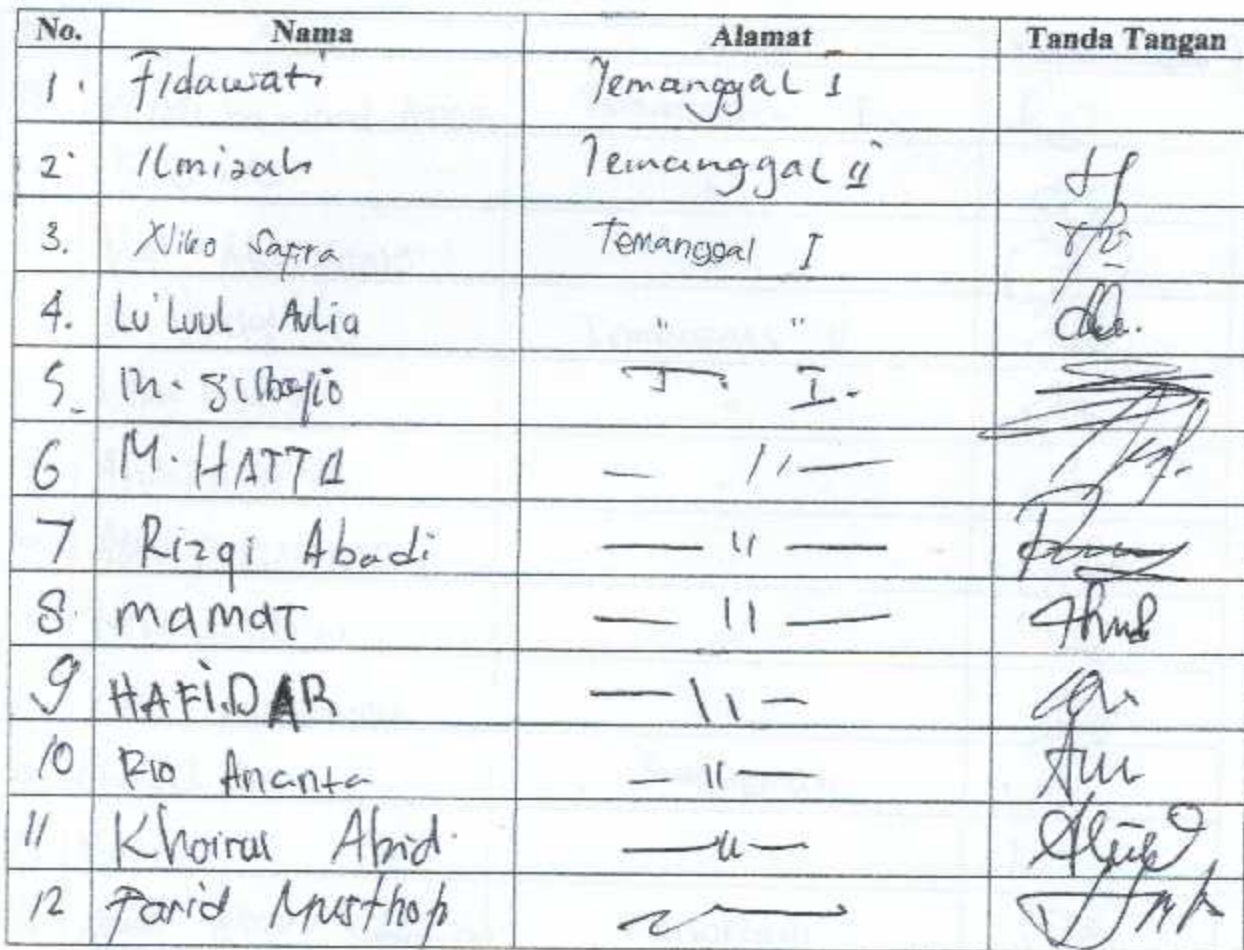 No. Nama Alamat Tanda Tangan
1. Fidawati Temanggal I
2. Ilmizah Temanggal II
3. Niko Sapra Temanggal I
4. Lu'Luul Aulia " "
5. M. T. I.
6 M. HATTA — " —
7 Rizqi Abadi — " —
8. MAMAT — " —
9 HAFIDAR — " —
10 Rio Ananta — " —
11 Khoirul Abid — " —
12 Farid Musthop